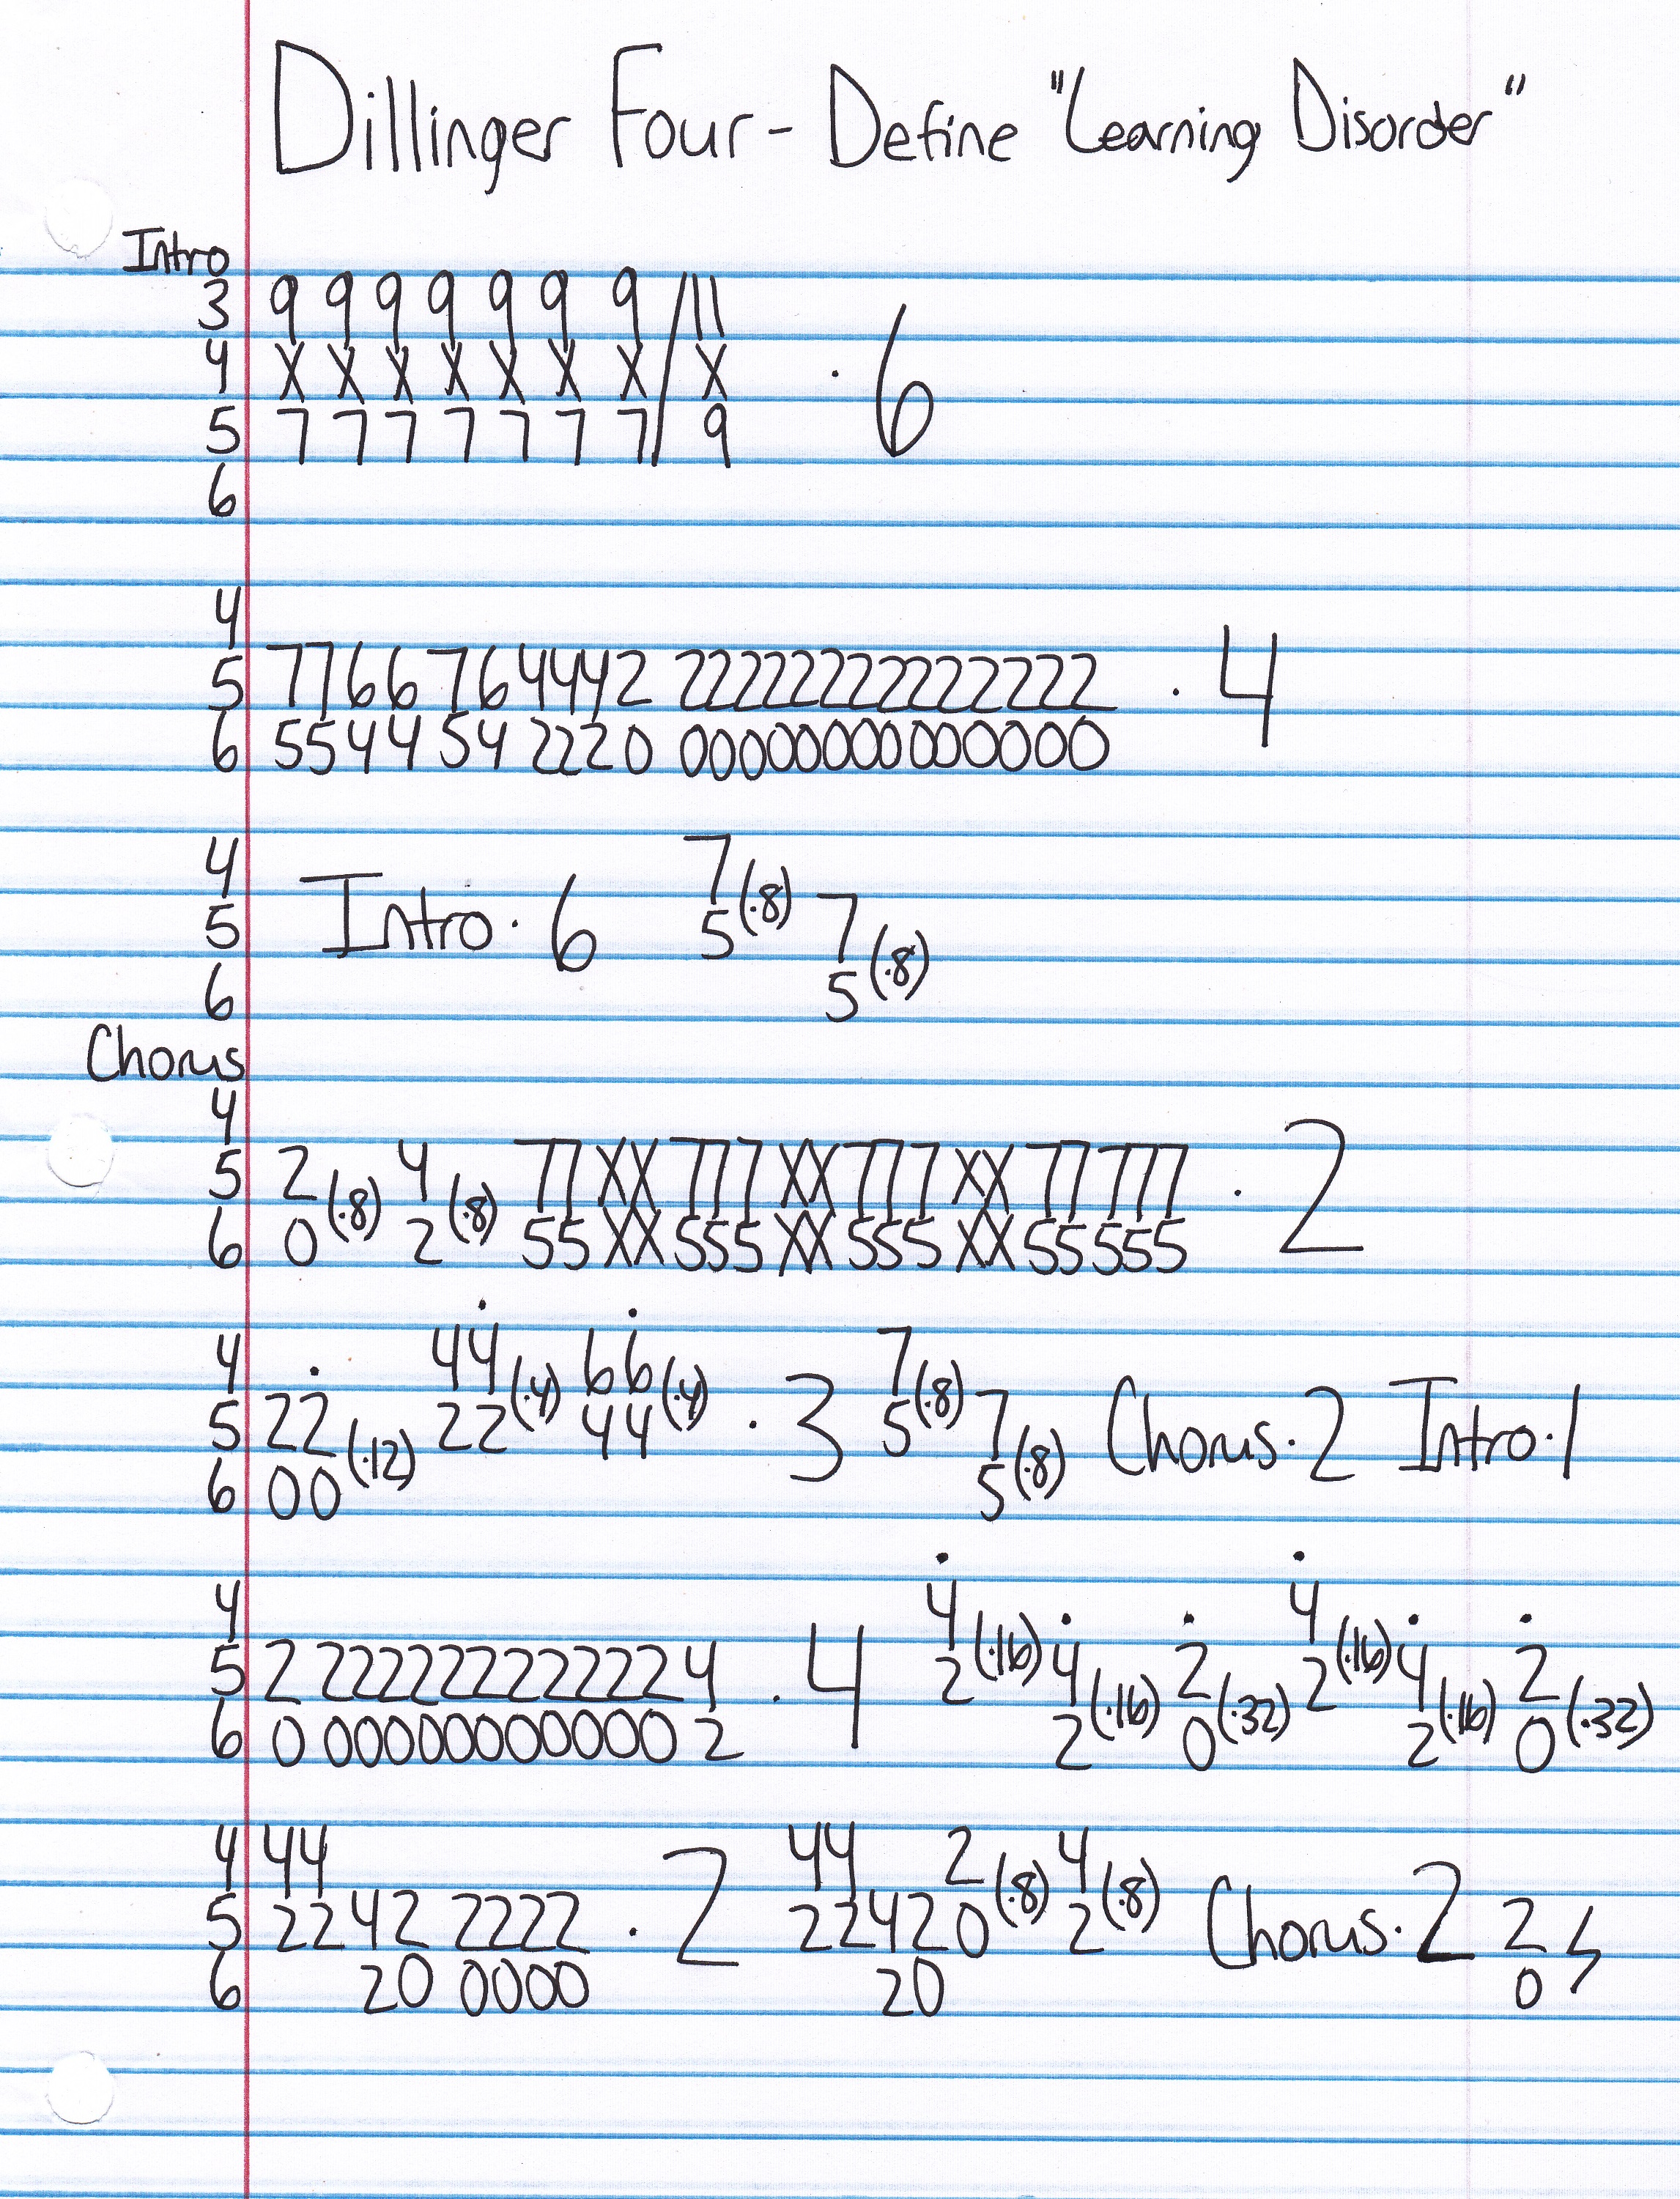 Dillinger Four - Define "Learning Disorder"
Intro
3 9 9 9 9 9 9 9 / 11
4 X X X X X X X / X · 6
5 7 7 7 7 7 7 7 / 9
6
4
5 77 66 76 4442 22222222222222 · 4
6 55 44 54 2220 00000000000000
4 7
5 Intro · 6 5 (·8) 7
6 5 (·8)
Chorus
4
5 2 (·8) 4 (·8) 77 XX 777 XX 777 XX 77 777 · 2
6 0 2 55 XX 555 XX 555 XX 55 555
4 44̇ (·4) 66̇ (·4) 7
5 22̇ (·12) 22 44 · 3 5 (·8) 7 Chorus · 2 Intro · 1
6 00 5 (·8)
4 4̇ 4̇
5 2 222222222224 · 4 2 (·16) 4̇ (·16) 2̇ (·32) 2 (·16) 4̇ (·16) 2̇ (·32)
6 0 000000000002 2 0 2 0
4 44 44 2 4
5 2242 2222 · 2 22420 (·8) 2 (·8) Chorus · 2 2
6 20 0000 20 0